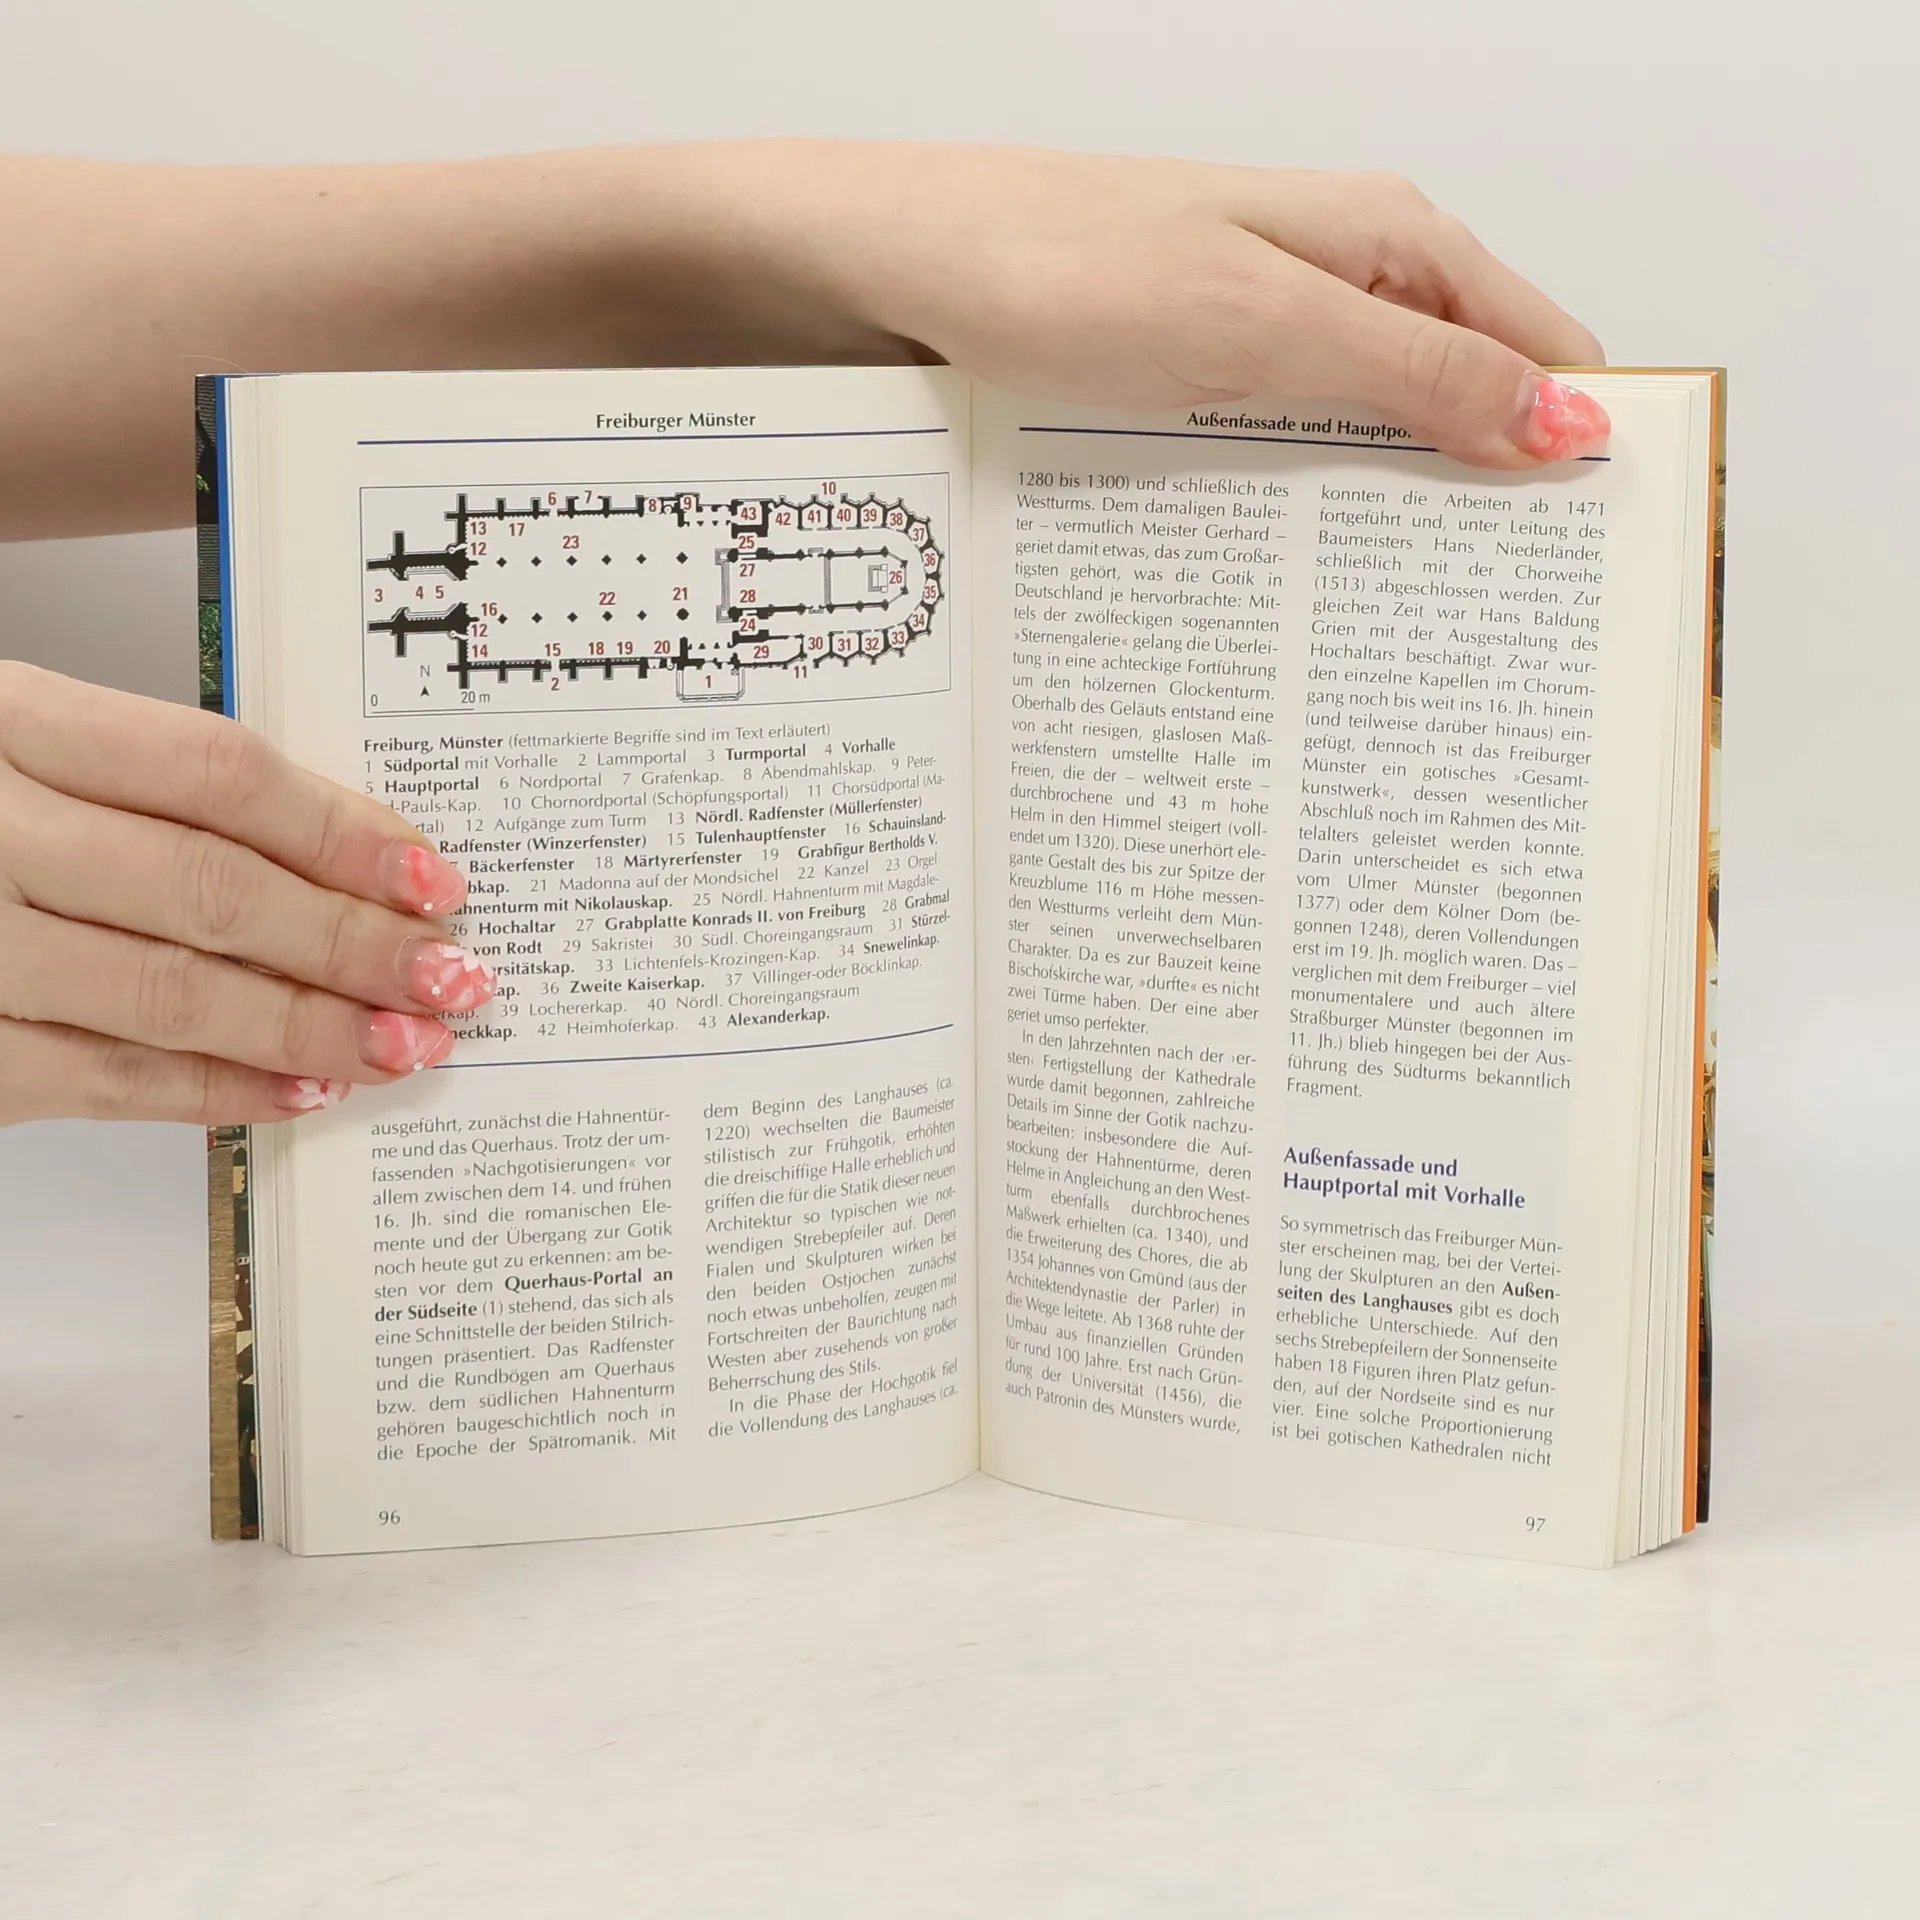 Freiburger Münster
10
6 7 8 9 43 42 41 40 39 38
13 17 37
12 23 25 36
27 26
3 4 5 21 28 35
16 22 24 34
12 30 31 32 33
14 15 18 19 20 29
N 2 1 11
0 20 m
Freiburg, Münster (fettmarkierte Begriffe sind im Text erläutert)
1 Südportal mit Vorhalle 2 Lammportal 3 Turmportal 4 Vorhalle
5 Hauptportal 6 Nordportal 7 Grafenkap. 8 Abendmahlskap. 9 Peter-
-Pauls-Kap. 10 Chornordportal (Schöpfungsportal) 11 Chorsüdportal (Ma-
12 Aufgänge zum Turm 13 Nördl. Radfenster (Müllerfenster)
Radfenster (Winzerfenster) 15 Tulenhauptfenster 16 Schauinsland-
Bäckerfenster 18 Märtyrerfenster 19 Grabfigur Bertholds V.
21 Madonna auf der Mondsichel 22 Kanzel 23 Orgel
mit Nikolauskap. 25 Nördl. Hahnenturm mit Magdale-
26 Hochaltar 27 Grabplatte Konrads II. von Freiburg 28 Grabmal
von Rodt 29 Sakristei 30 Südl. Choreingangsraum 31 Stürzel-
33 Lichtenfels-Krozingen-Kap. 34 Snewelinkap.
36 Zweite Kaiserkap. 37 Villinger-oder Böcklinkap.
39 Lochererkap. 40 Nördl. Choreingangsraum
42 Heimhoferkap. 43 Alexanderkap.
ausgeführt, zunächst die Hahnentür-
me und das Querhaus. Trotz der um-
fassenden »Nachgotisierungen« vor
allem zwischen dem 14. und frühen
16. Jh. sind die romanischen Ele-
mente und der Übergang zur Gotik
noch heute gut zu erkennen: am be-
sten vor dem Querhaus-Portal an
der Südseite (1) stehend, das sich als
eine Schnittstelle der beiden Stilrich-
tungen präsentiert. Das Radfenster
und die Rundbögen am Querhaus
bzw. dem südlichen Hahnenturm
gehören baugeschichtlich noch in
die Epoche der Spätromanik. Mit
dem Beginn des Langhauses (ca.
1220) wechselten die Baumeister
stilistisch zur Frühgotik, erhöhten
die dreischiffige Halle erheblich und
griffen die für die Statik dieser neuen
Architektur so typischen wie not-
wendigen Strebepfeiler auf. Deren
Fialen und Skulpturen wirken bei
den beiden Ostjochen zunächst
noch etwas unbeholfen, zeugen mit
Fortschreiten der Baurichtung nach
Westen aber zusehends von großer
Beherrschung des Stils.
In die Phase der Hochgotik fiel
die Vollendung des Langhauses (ca.
96
Außenfassade und Hauptpo
1280 bis 1300) und schließlich des
Westturms. Dem damaligen Baulei-
ter – vermutlich Meister Gerhard –
geriet damit etwas, das zum Großar-
tigsten gehört, was die Gotik in
Deutschland je hervorbrachte: Mit-
tels der zwölfeckigen sogenannten
»Sternengalerie« gelang die Überlei-
tung in eine achteckige Fortführung
um den hölzernen Glockenturm.
Oberhalb des Geläuts entstand eine
von acht riesigen, glaslosen Maß-
werkfenstern umstellte Halle im
Freien, die der – weltweit erste –
durchbrochene und 43 m hohe
Helm in den Himmel steigert (voll-
endet um 1320). Diese unerhört ele-
gante Gestalt des bis zur Spitze der
Kreuzblume 116 m Höhe messen-
den Westturms verleiht dem Mün-
ster seinen unverwechselbaren
Charakter. Da es zur Bauzeit keine
Bischofskirche war, »durfte« es nicht
zwei Türme haben. Der eine aber
geriet umso perfekter.
In den Jahrzehnten nach der ›er-
sten‹ Fertigstellung der Kathedrale
wurde damit begonnen, zahlreiche
Details im Sinne der Gotik nachzu-
bearbeiten: insbesondere die Auf-
stockung der Hahnentürme, deren
Helme in Angleichung an den West-
turm ebenfalls durchbrochenes
Maßwerk erhielten (ca. 1340), und
die Erweiterung des Chores, die ab
1354 Johannes von Gmünd (aus der
Architektendynastie der Parler) in
die Wege leitete. Ab 1368 ruhte der
Umbau aus finanziellen Gründen
für rund 100 Jahre. Erst nach Grün-
dung der Universität (1456), die
auch Patronin des Münsters wurde,
konnten die Arbeiten ab 1471
fortgeführt und, unter Leitung des
Baumeisters Hans Niederländer,
schließlich mit der Chorweihe
(1513) abgeschlossen werden. Zur
gleichen Zeit war Hans Baldung
Grien mit der Ausgestaltung des
Hochaltars beschäftigt. Zwar wur-
den einzelne Kapellen im Chorum-
gang noch bis weit ins 16. Jh. hinein
(und teilweise darüber hinaus) ein-
gefügt, dennoch ist das Freiburger
Münster ein gotisches »Gesamt-
kunstwerk«, dessen wesentlicher
Abschluß noch im Rahmen des Mit-
telalters geleistet werden konnte.
Darin unterscheidet es sich etwa
vom Ulmer Münster (begonnen
1377) oder dem Kölner Dom (be-
gonnen 1248), deren Vollendungen
erst im 19. Jh. möglich waren. Das –
verglichen mit dem Freiburger – viel
monumentalere und auch ältere
Straßburger Münster (begonnen im
11. Jh.) blieb hingegen bei der Aus-
führung des Südturms bekanntlich
Fragment.
Außenfassade und
Hauptportal mit Vorhalle
So symmetrisch das Freiburger Mün-
ster erscheinen mag, bei der Vertei-
lung der Skulpturen an den Außen-
seiten des Langhauses gibt es doch
erhebliche Unterschiede. Auf den
sechs Strebepfeilern der Sonnenseite
haben 18 Figuren ihren Platz gefun-
den, auf der Nordseite sind es nur
vier. Eine solche Proportionierung
ist bei gotischen Kathedralen nicht
97